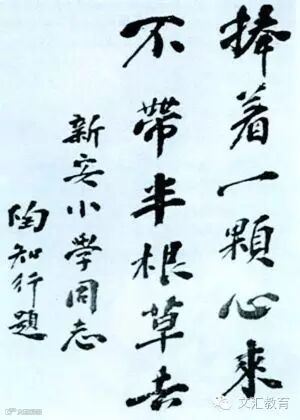 捧着一顆心來
不帶半根草去
新安小學同志
陶知行題
文汇教育